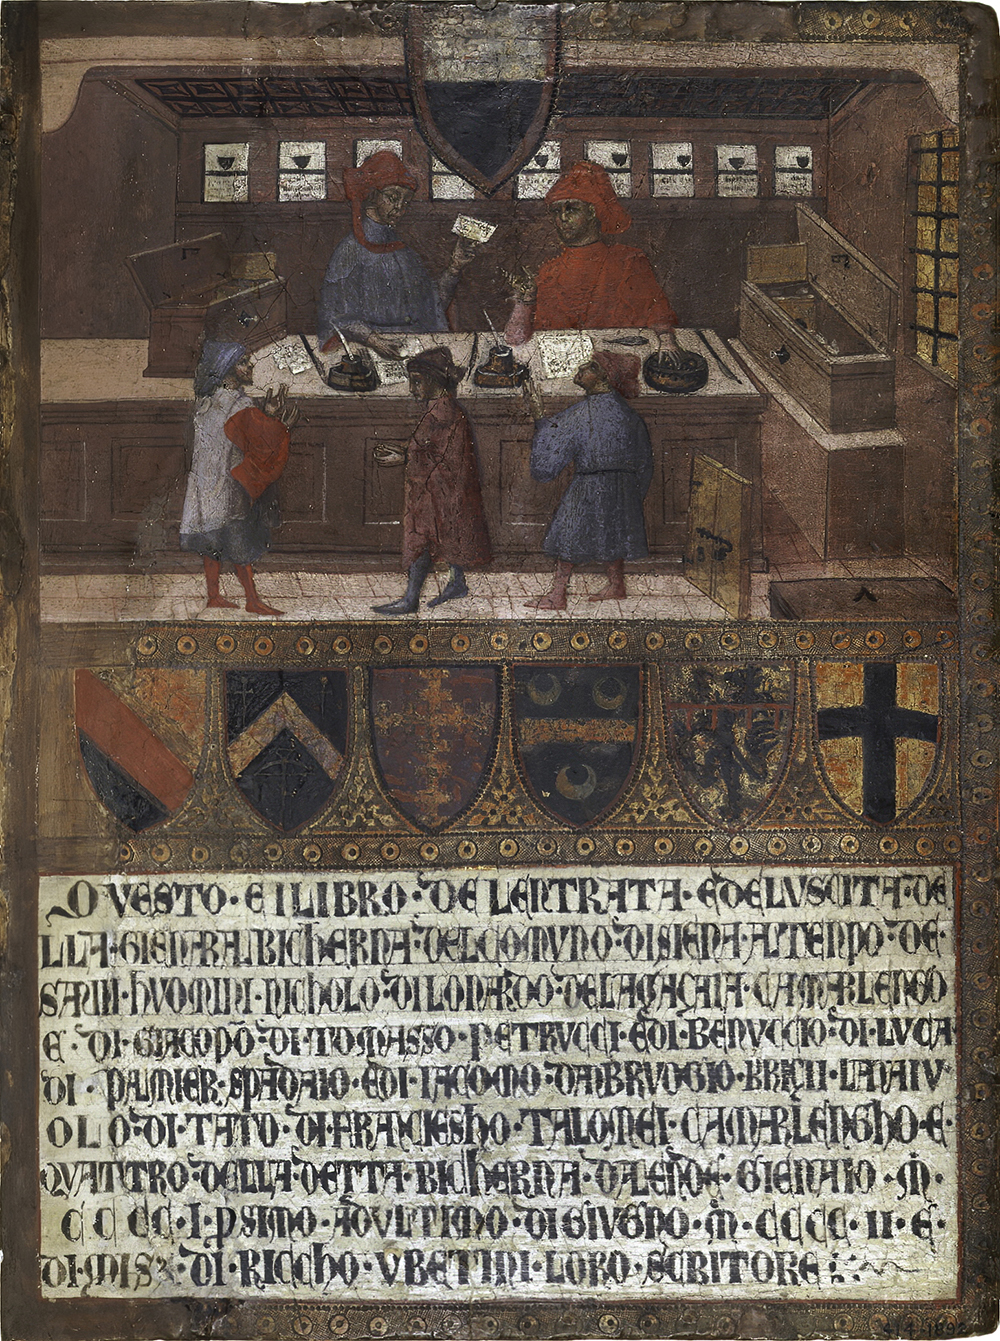 QVESTO·E ILIBRO·DE LENTRATA·EDELVSCITA·DE
LLA·GIENERAL·BICHERNA·DELCOMVNO·DISIENA·ALTENPO·DE·
SAVII·HVOMINI·NICHOLO·DILONARDO·DELAGACAIA·CAMARLENGO
E·DI·GIACOPO·DI·TOMASSO·PETRVCCI·EDI·BENVCCIO·DI·LVCA
DI·PALMIER·SPADAIO·EDI·IACOMO·DANBRVOGIO·LANAIV
OLO·DI·TATO·DI·FRACIESHO·TALOMEI·CAMARLENGHO·E·
QVATTRO·DELLA·DETTA·BICHERNA·GIENAIO·M̄·
CCCC·I·PSIMO·ADVLTIMO·DIGIVGNO·M̄·CCCC·II·E·
DI·MIS·DI·RICCHO·VBETINI·LORO·SCRITORE